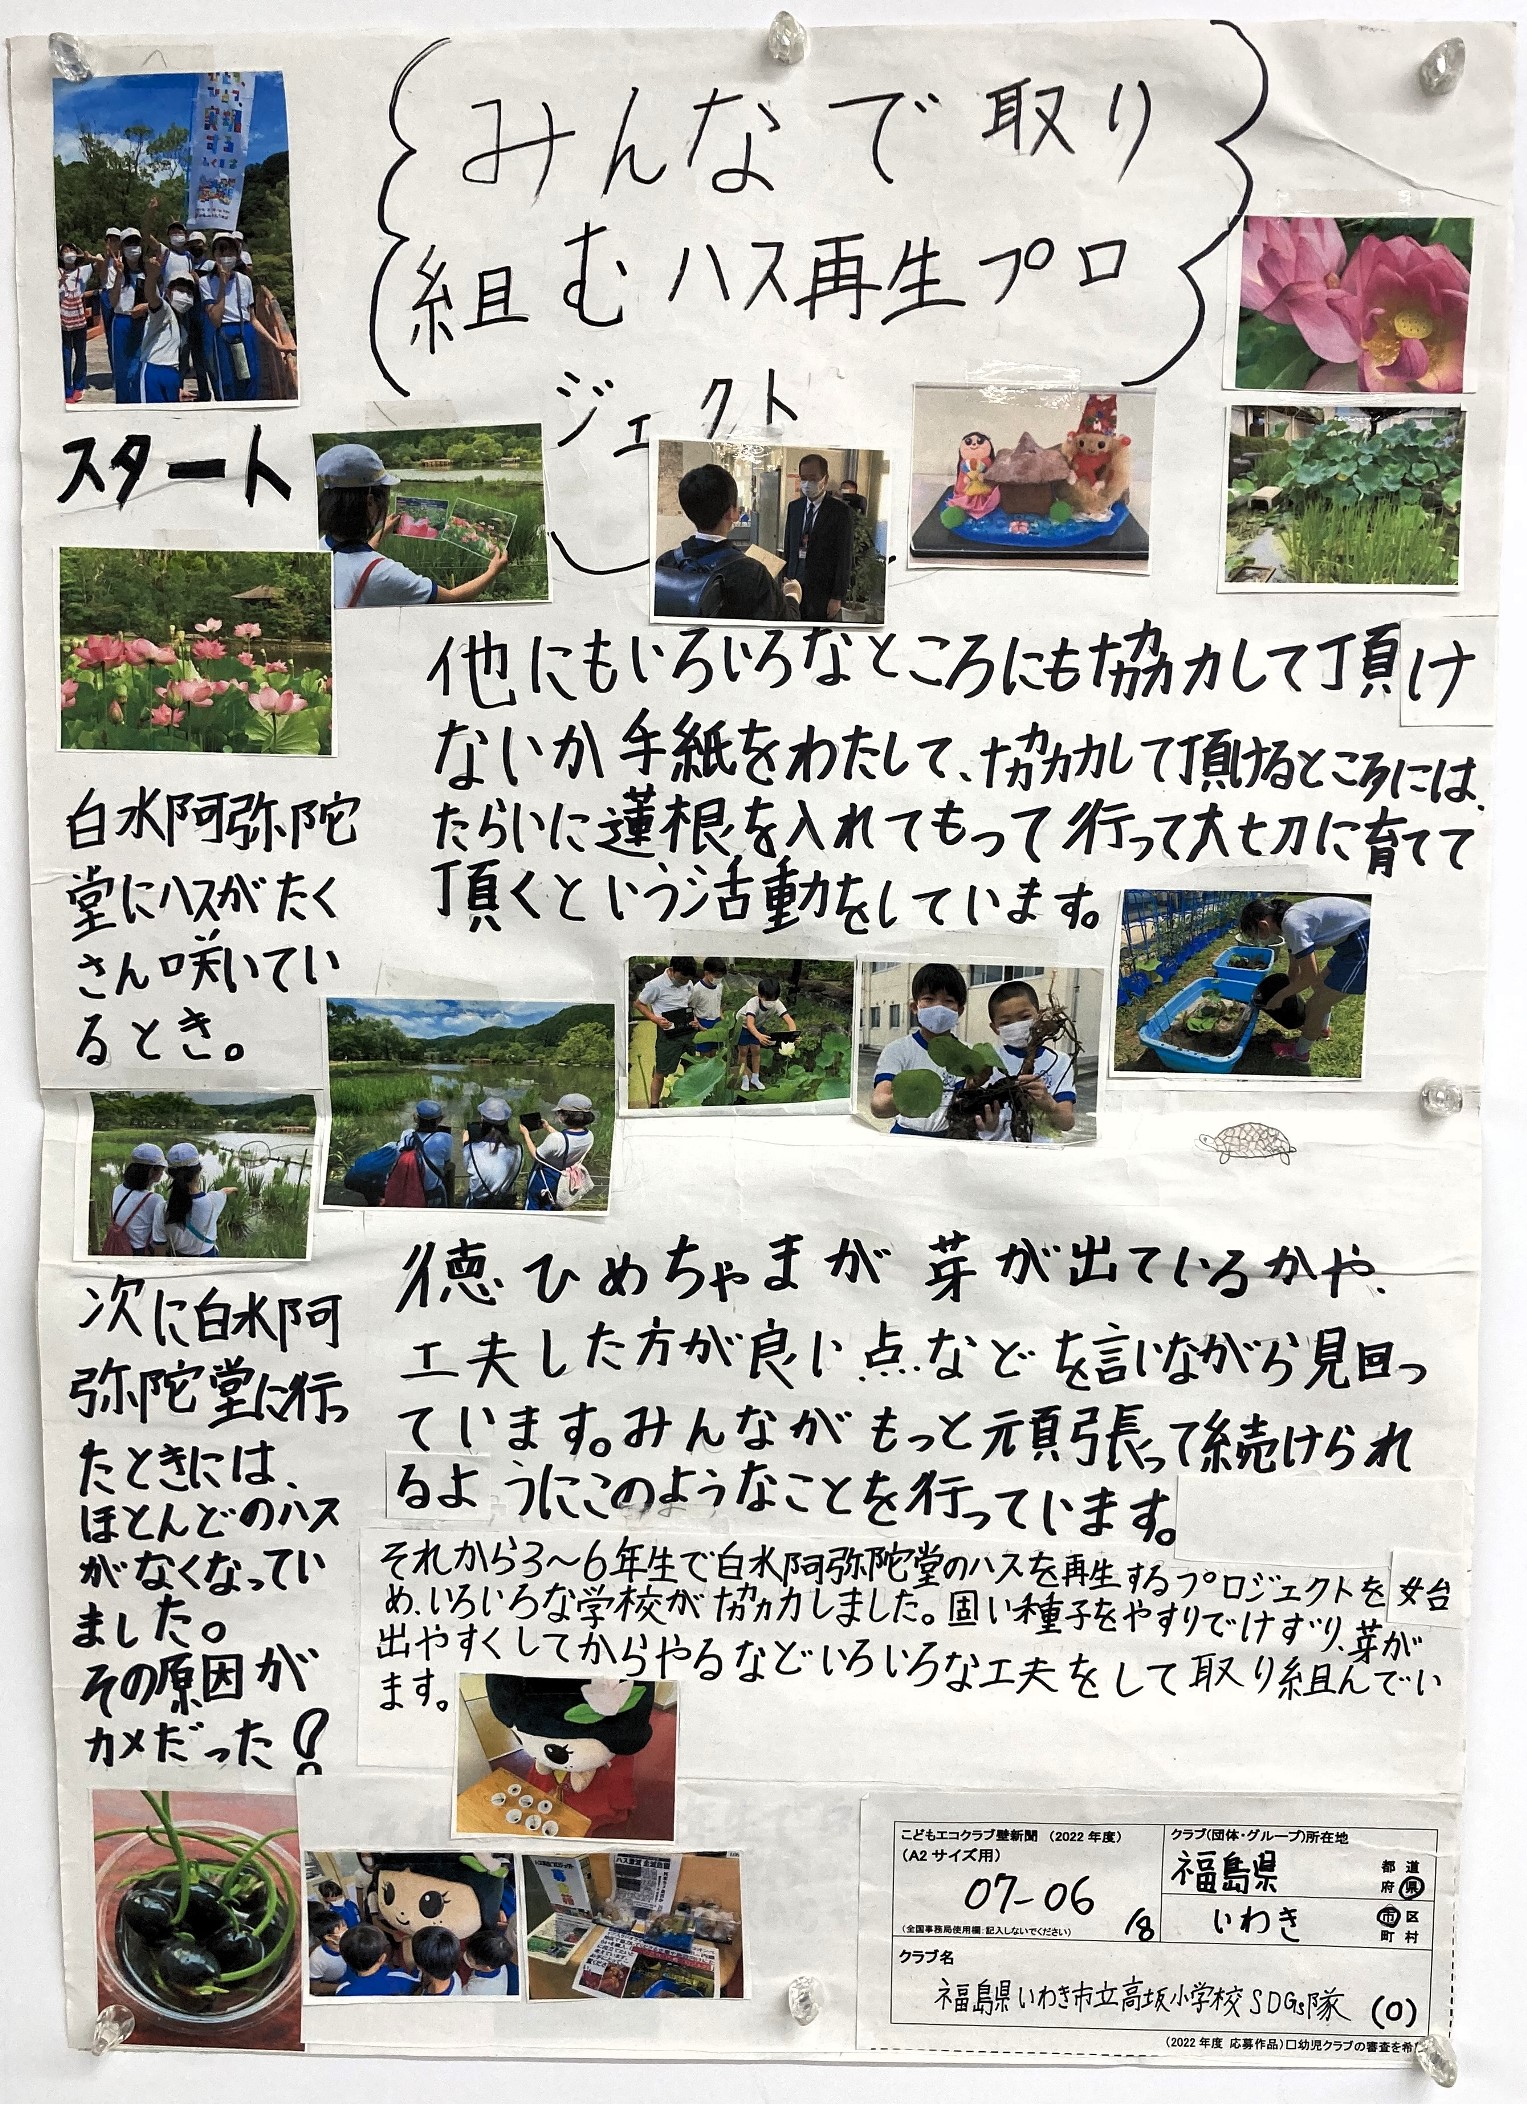 みんなで取り
組むハス再生プロ
ジェクト
スタート
白水阿弥陀
堂にハスがたく
さん咲いてい
るとき。
次に白水阿
弥陀堂に行っ
たときには、
ほとんどのハス
がなくなってい
ました。
その原因が
カメだった!
それから3〜6年生で白水阿弥陀堂のハスを再生するプロジェクトを始
め、いろいろな学校が協力しました。固い種子をやすりでけずり、芽が
出やすくしてからやるなどいろいろな工夫をして取り組んでい
ます。
他にもいろいろなところにも協力して頂け
ないか手紙をわたして、協力して頂けるところには、
たらいに蓮根を入れてもって行って大切に育てて
頂くという活動をしています。
徳ひめちゃまが芽が出ているかや、
工夫した方が良い点などを言いながら見回っ
ています。みんながもっと頑張って続けられ
るようにこのようなことを行っています。
こどもエコクラブ壁新聞 (2022年度)
(A2サイズ用)
07-06
/8
(全国事務局使用欄:記入しないでください)
クラブ(団体・グループ)所在地
福島県
都 道
府 県
いわき
市 区
町 村
クラブ名
福島県いわき市立高坂小学校SDGs隊 (0)
(2022年度 応募作品)□幼児クラブの審査を希